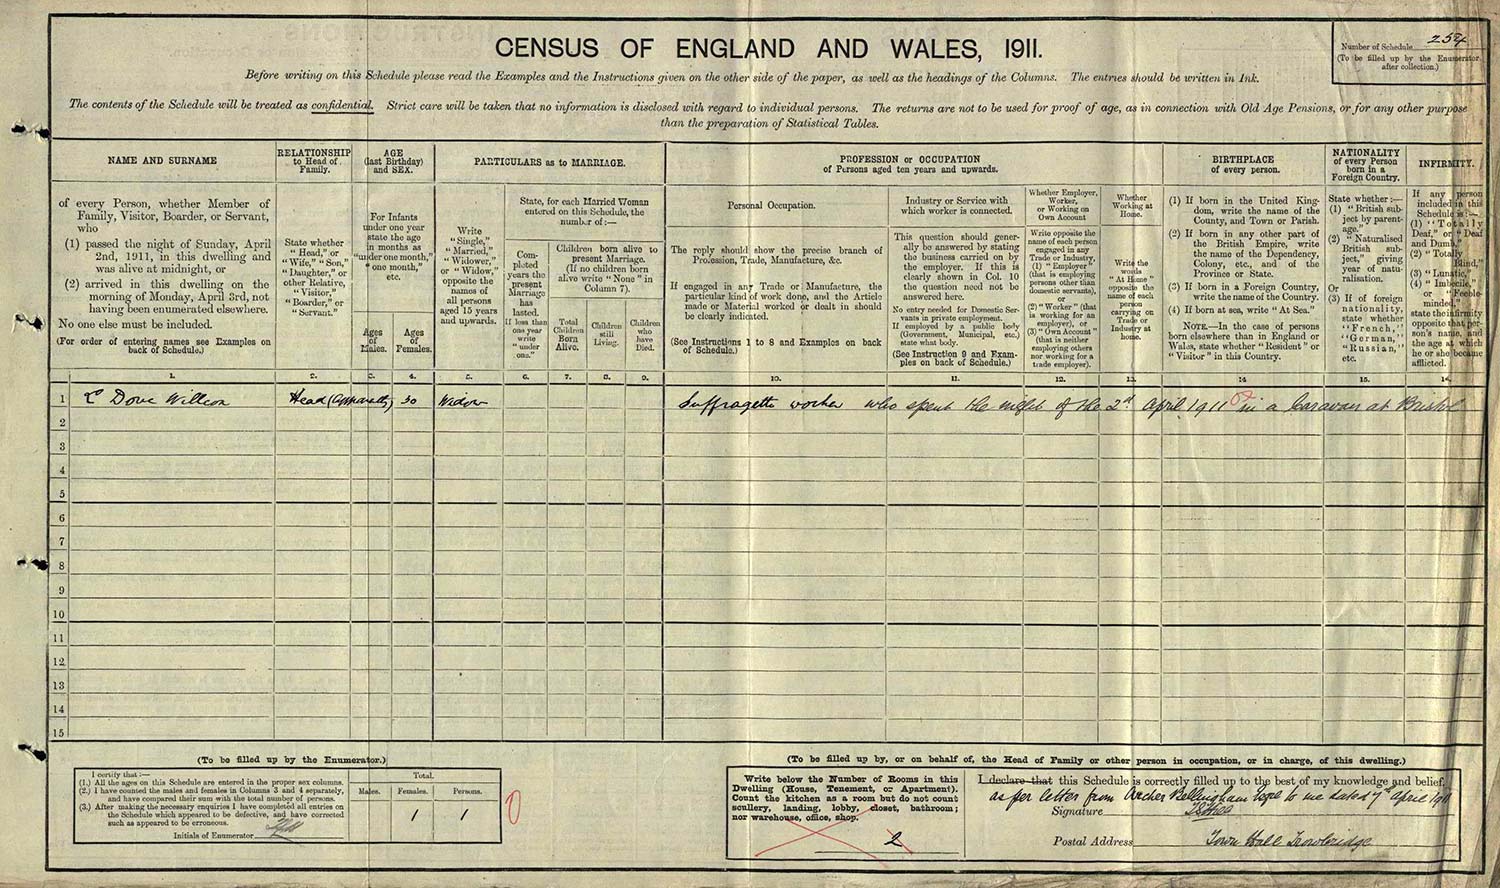 CENSUS OF ENGLAND AND WALES, 1911.
Number of Schedule 254
(To be filled up by the Enumerator after collection.)
Before writing on this Schedule please read the Examples and the Instructions given on the other side of the paper, as well as the headings of the Columns. The entries should be written in Ink.
The contents of the Schedule will be treated as confidential. Strict care will be taken that no information is disclosed with regard to individual persons. The returns are not to be used for proof of age, as in connection with Old Age Pensions, or for any other purpose
than the preparation of Statistical Tables.
NAME AND SURNAME
of every Person, whether Member of
Family, Visitor, Boarder, or Servant,
who
(1) passed the night of Sunday, April
2nd, 1911, in this dwelling and
was alive at midnight, or
(2) arrived in this dwelling on the
morning of Monday, April 3rd, not
having been enumerated elsewhere.
No one else must be included.
(For order of entering names see Examples on
back of Schedule.)
RELATIONSHIP
to Head of
Family.
State whether
"Head," or
"Wife," "Son,"
"Daughter," or
other Relative,
"Visitor,"
"Boarder," or
"Servant."
AGE
(last Birthday)
and SEX.
For Infants
under one year
state the age
in months as
"under one month,"
"one month,"
etc.
Ages
of
Males.
Ages
of
Females.
PARTICULARS as to MARRIAGE.
Write
"Single,"
"Married,"
"Widower,"
or "Widow,"
opposite the
names of
all persons
aged 15 years
and upwards.
State, for each Married Woman
entered on this Schedule, the
number of:—
Com-
pleted
years the
present
Marriage
has
lasted.
If less than
one year
write
"under
one."
Children born alive to
present Marriage.
(If no children born
alive write "None" in
Column 7).
Total
Children
Born
Alive.
Children
still
Living.
Children
who
have
Died.
PROFESSION or OCCUPATION
of Persons aged ten years and upwards.
Personal Occupation.
The reply should show the precise branch of
Profession, Trade, Manufacture, &c.
If engaged in any Trade or Manufacture, the
particular kind of work done, and the Article
made or Material worked or dealt in should
be clearly indicated.
(See Instructions 1 to 8 and Examples on back
of Schedule.)
Industry or Service with
which worker is connected.
This question should gener-
ally be answered by stating
the business carried on by
the employer. If this is
clearly shown in Col. 10
the question need not be
answered here.
No entry needed for Domestic Ser-
vants in private employment.
If employed by a public body
(Government, Municipal, etc.)
state what body.
(See Instruction 9 and Exam-
ples on back of Schedule.)
Whether Employer,
Worker,
or Working on
Own Account
Write opposite the
name of each person
engaged in any
Trade or Industry,
(1) "Employer"
(that is employing
persons other than
domestic servants),
or
(2) "Worker" (that
is working for an
employer), or
(3) "Own Account"
(that is neither
employing others
nor working for a
trade employer).
Whether
Working at
Home.
Write the
words
"At Home"
opposite the
name of each
person
carrying on
Trade or
Industry at
home.
BIRTHPLACE
of every person.
(1) If born in the United King-
dom, write the name of the
County, and Town or Parish.
(2) If born in any other part of
the British Empire, write
the name of the Dependency,
Colony, etc., and of the
Province or State.
(3) If born in a Foreign Country,
write the name of the Country.
(4) If born at sea, write "At Sea."
NOTE.—In the case of persons
born elsewhere than in England or
Wales, state whether "Resident" or
"Visitor" in this Country.
NATIONALITY
of every Person
born in a
Foreign Country.
State whether:—
(1) "British sub-
ject by parent-
age."
(2) "Naturalised
British sub-
ject," giving
year of natu-
ralisation.
Or
(3) If of foreign
nationality,
state whether
"French,"
"German,"
"Russian,"
etc.
INFIRMITY.
If any person
included in this
Schedule is:—
(1) "Totally
Deaf," or "Deaf
and Dumb,"
(2) "Totally
Blind,"
(3) "Lunatic,"
(4) "Imbecile,"
or "Feeble-
minded,"
state the infirmity
opposite that per-
son's name, and
the age at which
he or she became
afflicted.
1. 2. 3. 4. 5. 6. 7. 8. 9. 10. 11. 12. 13. 14 15. 16.
1 L Dove Willcox Head (apparently) 30 Widow Suffragette worker who spent the night of the 2nd April 1911 in a Caravan at Bristol
2
3
4
5
6
7
8
9
10
11
12
13
14
15
(To be filled up by the Enumerator.)
I certify that:—
(1.) All the ages on this Schedule are entered in the proper sex columns.
(2.) I have counted the males and females in Columns 3 and 4 separately,
and have compared their sum with the total number of persons.
(3.) After making the necessary enquiries I have completed all entries on
the Schedule which appeared to be defective, and have corrected
such as appeared to be erroneous.
Initials of Enumerator
Total.
Males. Females. Persons.
1 1
(To be filled up by, or on behalf of, the Head of Family or other person in occupation, or in charge, of this dwelling.)
Write below the Number of Rooms in this
Dwelling (House, Tenement, or Apartment).
Count the kitchen as a room but do not count
scullery, landing, lobby, closet, bathroom;
nor warehouse, office, shop.
2
I declare that this Schedule is correctly filled up to the best of my knowledge and belief.
as per letter from Archer Bellingham to me dated 7th April 1911
Signature
Postal Address Town Hall Trowbridge